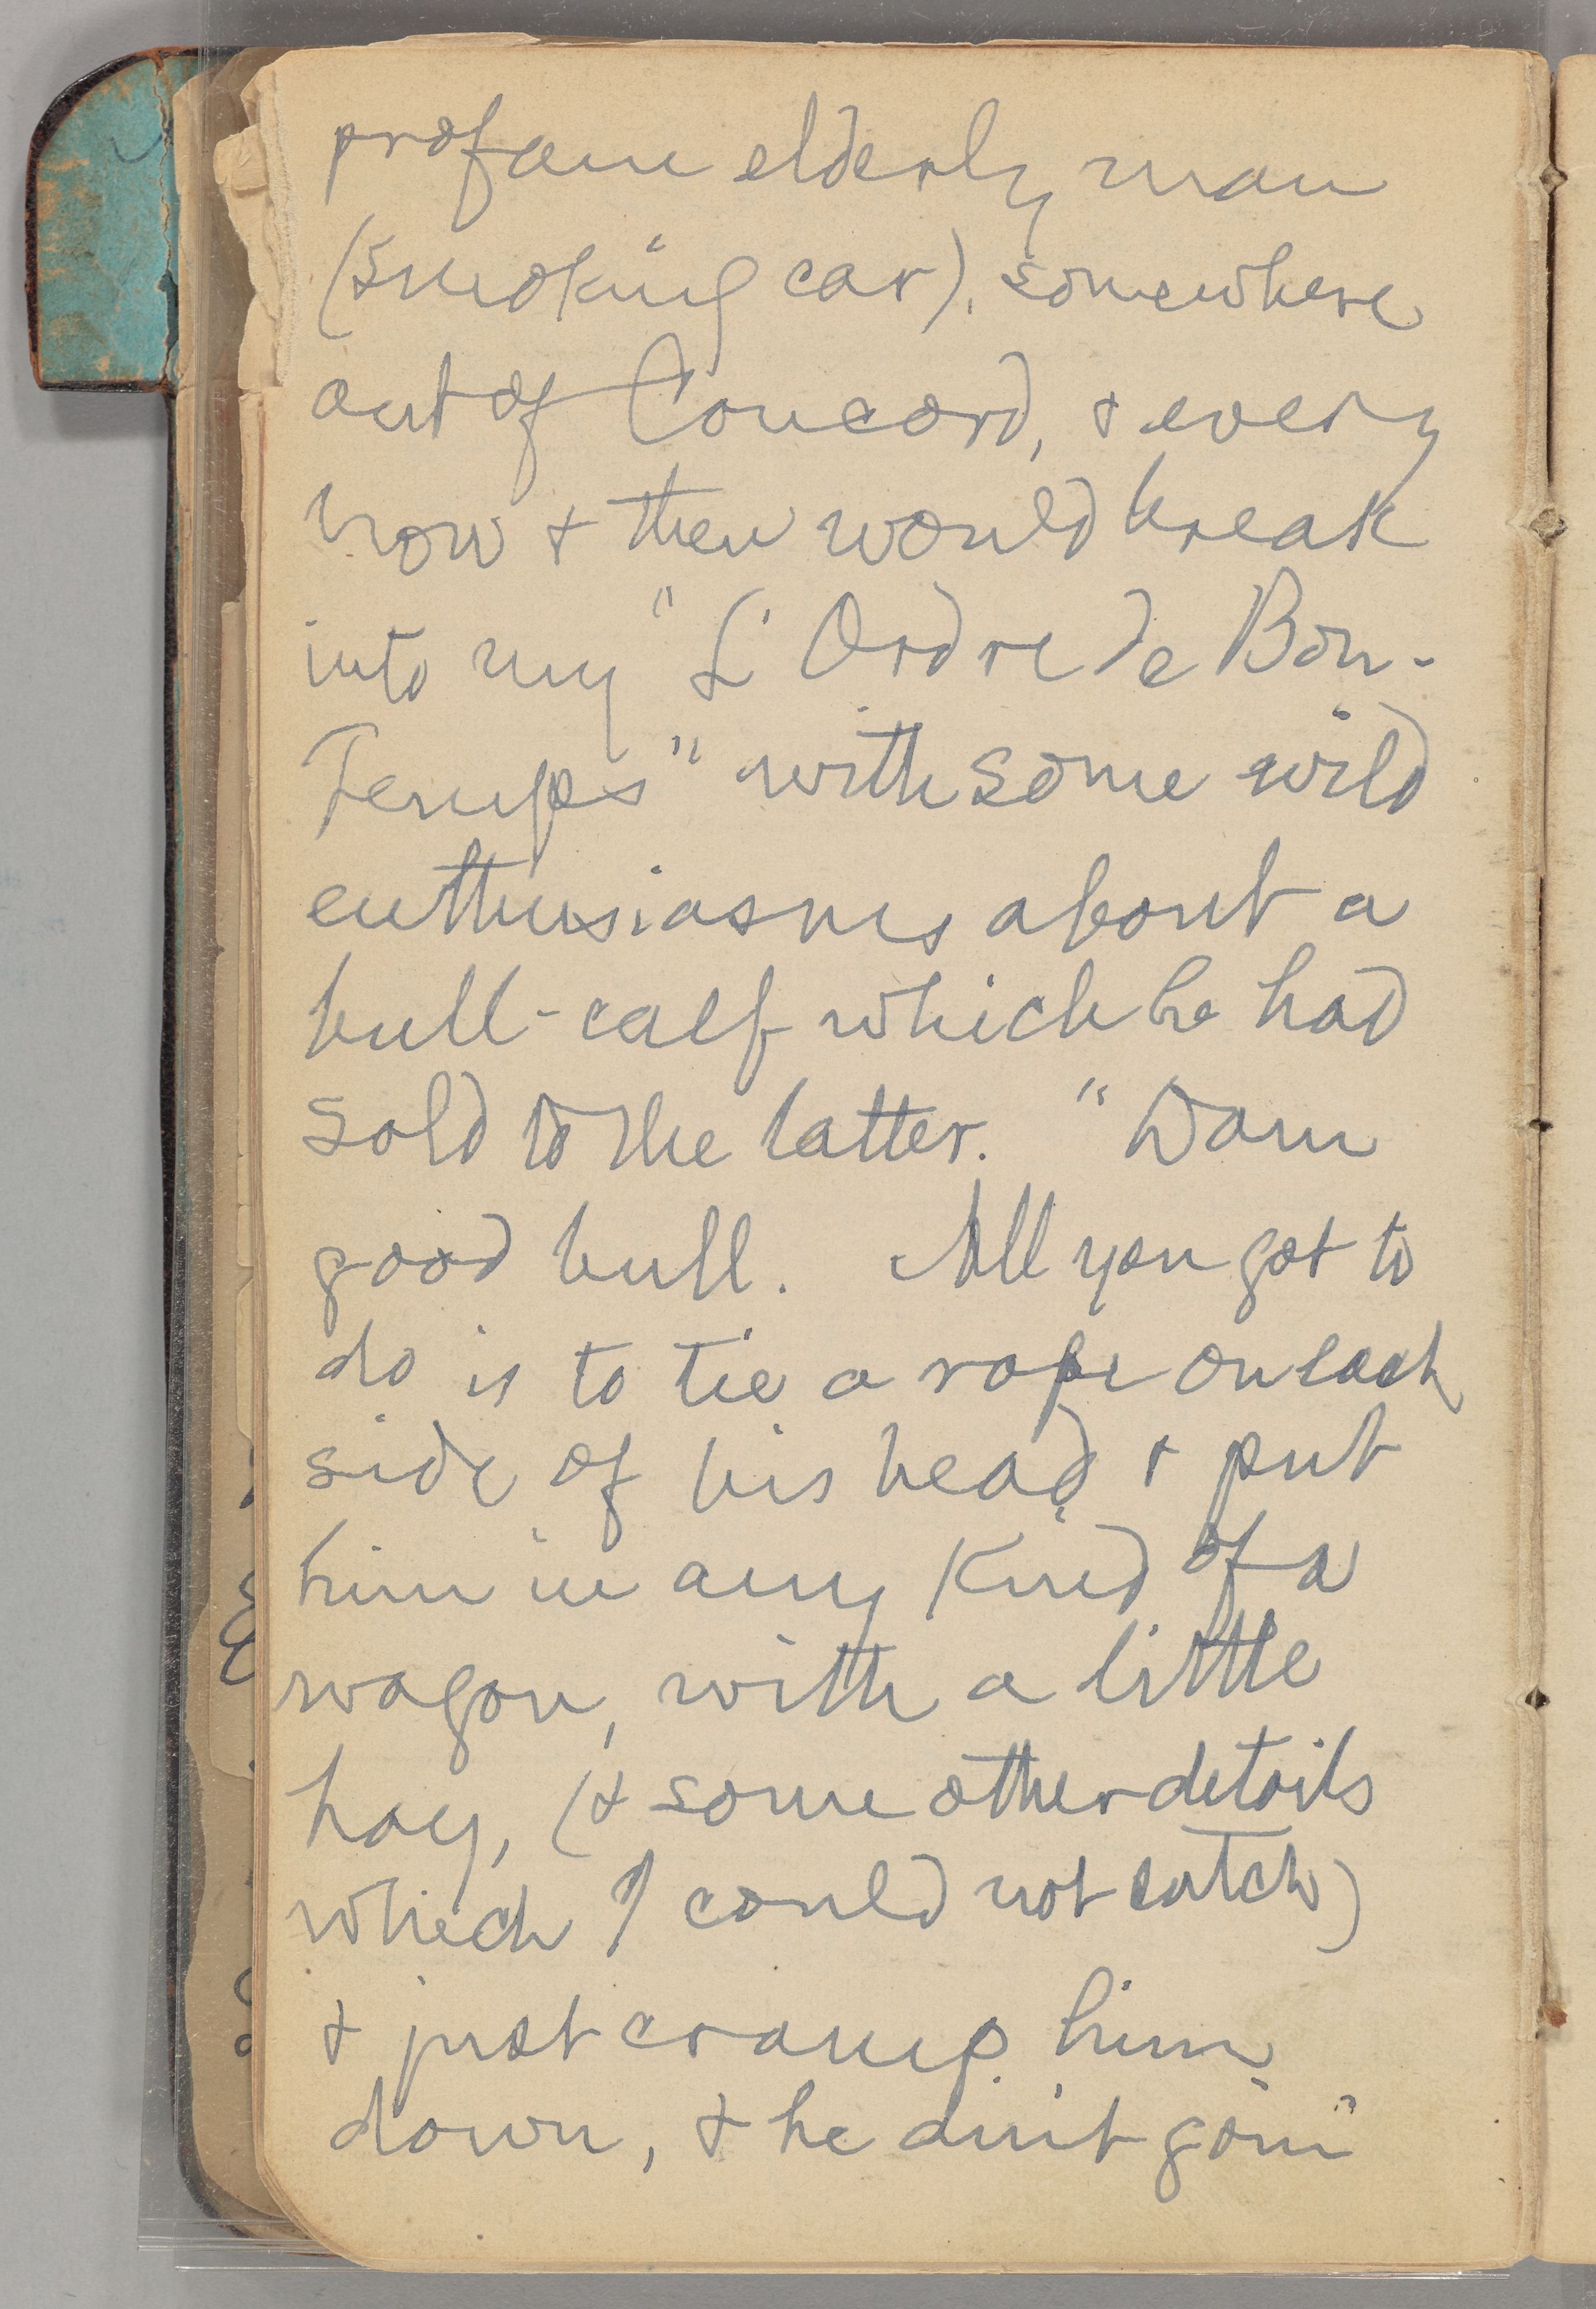 profane elderly man
(smoking car), somewhere
out of Concord, & every
now & then would break
into my "L'Ordre de Bon-
Temps" with some wild
enthusiasms about a
bull-calf which he had
sold to the latter. "Dam
good bull. All you got to
do is to tie a rope on each
side of his head & put
him in any kind of a
wagon, with a little
hay, (& some other details
which I could not catch)
& just cramp him
down, & he ain't goin'